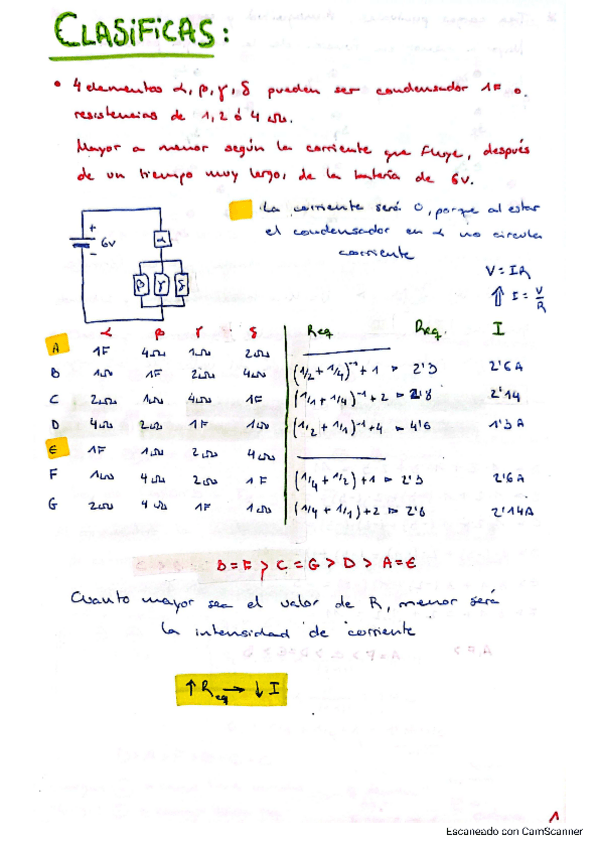 CLASIFICAS:
• 4 elementos α, β, γ, δ pueden ser condensador 1F o
resistencias de 1, 2 ó 4 Ω.
Mayor a menor según la corriente que fluye, después
de un tiempo muy largo, de la batería de 6v.
La corriente será 0, porque al estar
el condensador en α no circula
corriente
+
6v
-
α
β γ δ
V = IR
⇑ I = V/R
α β γ δ Req Req. I
A 1F 4Ω 1Ω 2Ω
B 1Ω 1F 2Ω 4Ω (1/2 + 1/4)⁻¹ + 1 2'3 2'6A
C 2Ω 1Ω 4Ω 1F (1/1 + 1/4)⁻¹ + 2 2'8 2'14
D 4Ω 2Ω 1F 1Ω (1/2 + 1/1)⁻¹ + 4 4'6 1'3A
E 1F 1Ω 2Ω 4Ω
F 1Ω 4Ω 2Ω 1F (1/4 + 1/2) + 1 2'3 2'6A
G 2Ω 4Ω 1F 1Ω (1/4 + 1/1) + 2 2'8 2'14A
B = F > C = G > D > A = E
Cuanto mayor sea el valor de R, menor será
la intensidad de corriente
↑ Req → ↓ I
1
Escaneado con CamScanner